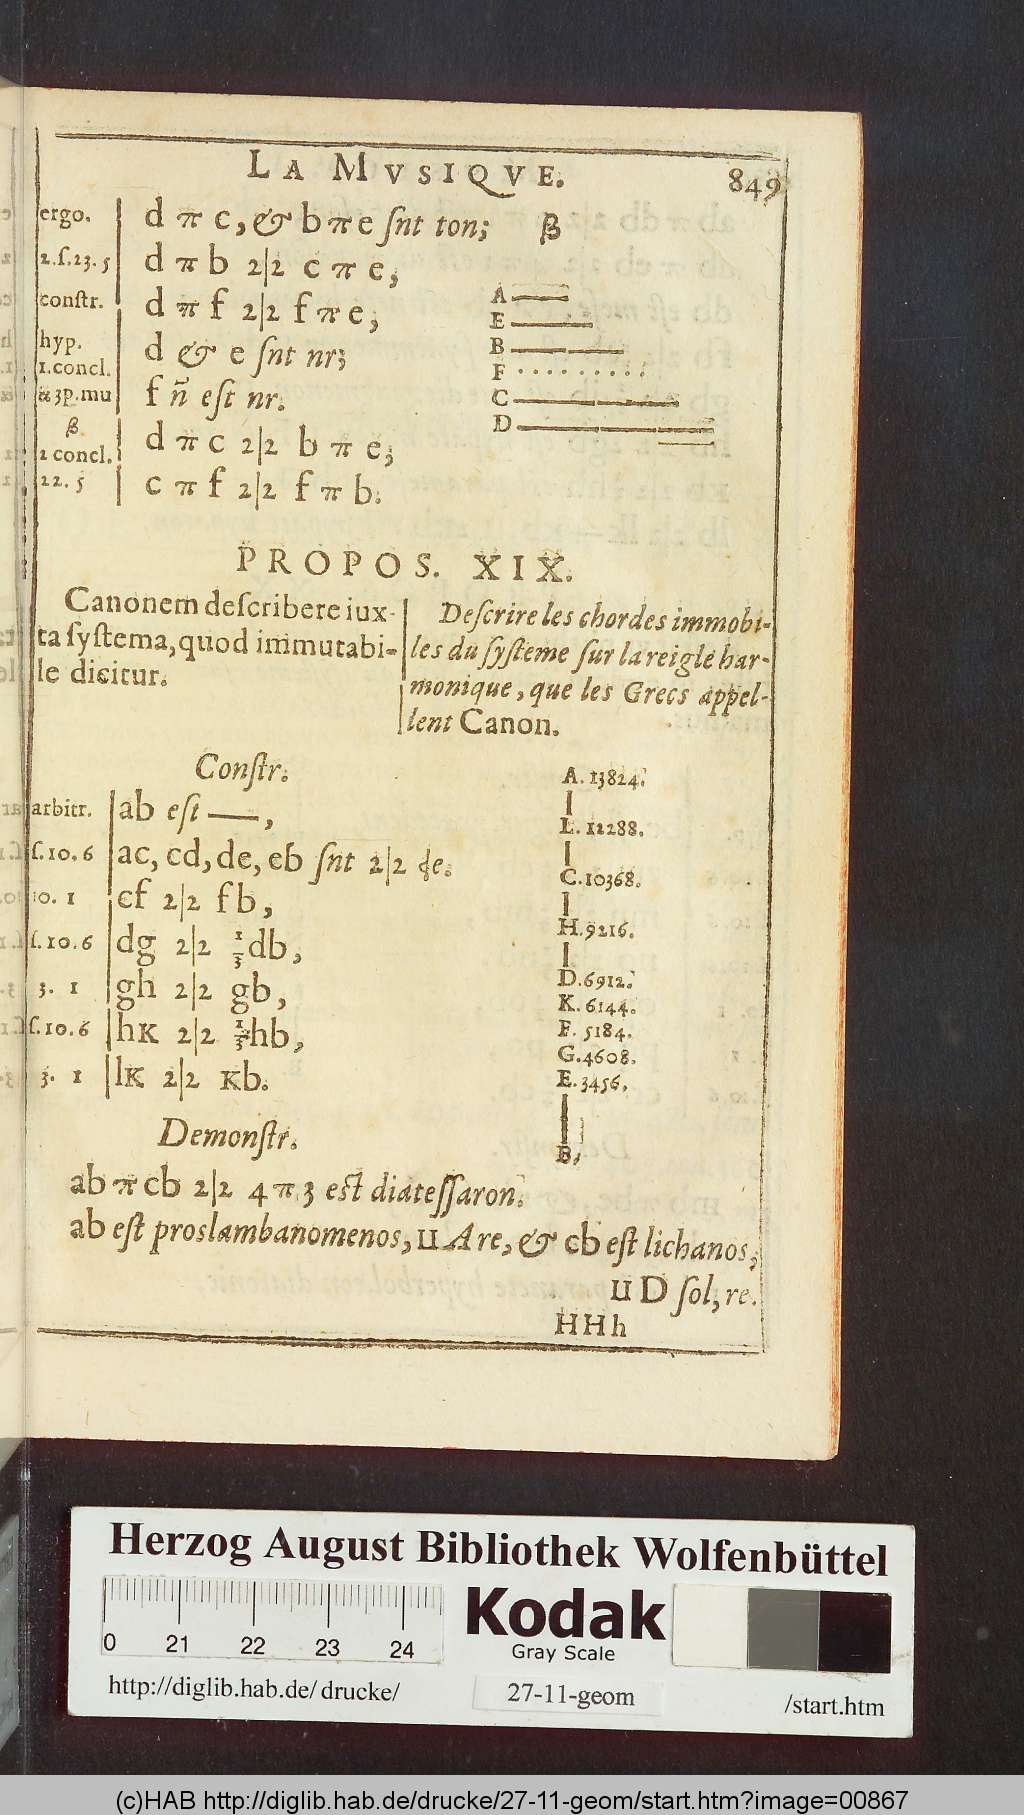 LA MVSIQVE. 849
ergo. d π c, & b π e ſnt ton; β
2.ſ.23.5 d π b 2|2 c π e,
conſtr. d π f 2|2 f π e,
hyp. d & e ſnt nr;
1.concl.
& 3p.mu f ñ eſt nr.
β
2 concl. d π c 2|2 b π e;
22. 5 c π f 2|2 f π b.
A
E
B
F
C
D
PROPOS. XIX.
Canonem deſcribere iux-
ta ſyſtema, quod immutabi-
le dicitur.
Deſcrire les chordes immobi-
les du ſyſteme ſur la reigle har-
monique, que les Grecs appel-
lent Canon.
Conſtr.
arbitr. ab eſt —,
ſ.10.6 ac, cd, de, eb ſnt 2|2 de.
10. 1 cf 2|2 fb,
ſ.10.6 dg 2|2 1/3 db,
3. 1 gh 2|2 gb,
ſ.10.6 hK 2|2 1/3 hb,
3. 1 lK 2|2 Kb.
A. 13824.
L. 12288.
C. 10368.
H. 9216.
D. 6912.
K. 6144.
F. 5184.
G. 4608.
E. 3456.
B,
Demonſtr.
ab π cb 2|2 4 π 3 eſt diateſſaron.
ab eſt proslambanomenos, u A re, & cb eſt lichanos;
u D ſol, re.
HHh
Herzog August Bibliothek Wolfenbüttel
0 21 22 23 24
Kodak
Gray Scale
http://diglib.hab.de/drucke/ 27-11-geom /start.htm
(c)HAB http://diglib.hab.de/drucke/27-11-geom/start.htm?image=00867